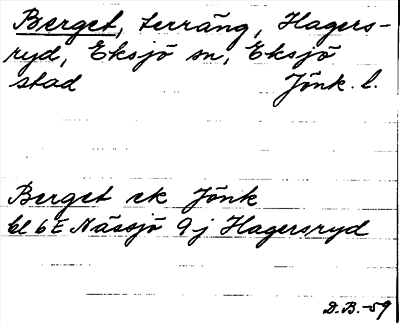 Berget, terräng, Hagers-
ryd, Eksjö sn, Eksjö
stad Jönk. l.
Berget ek Jönk
bl 6E Nässjö 9j Hagersryd
D.B.-59